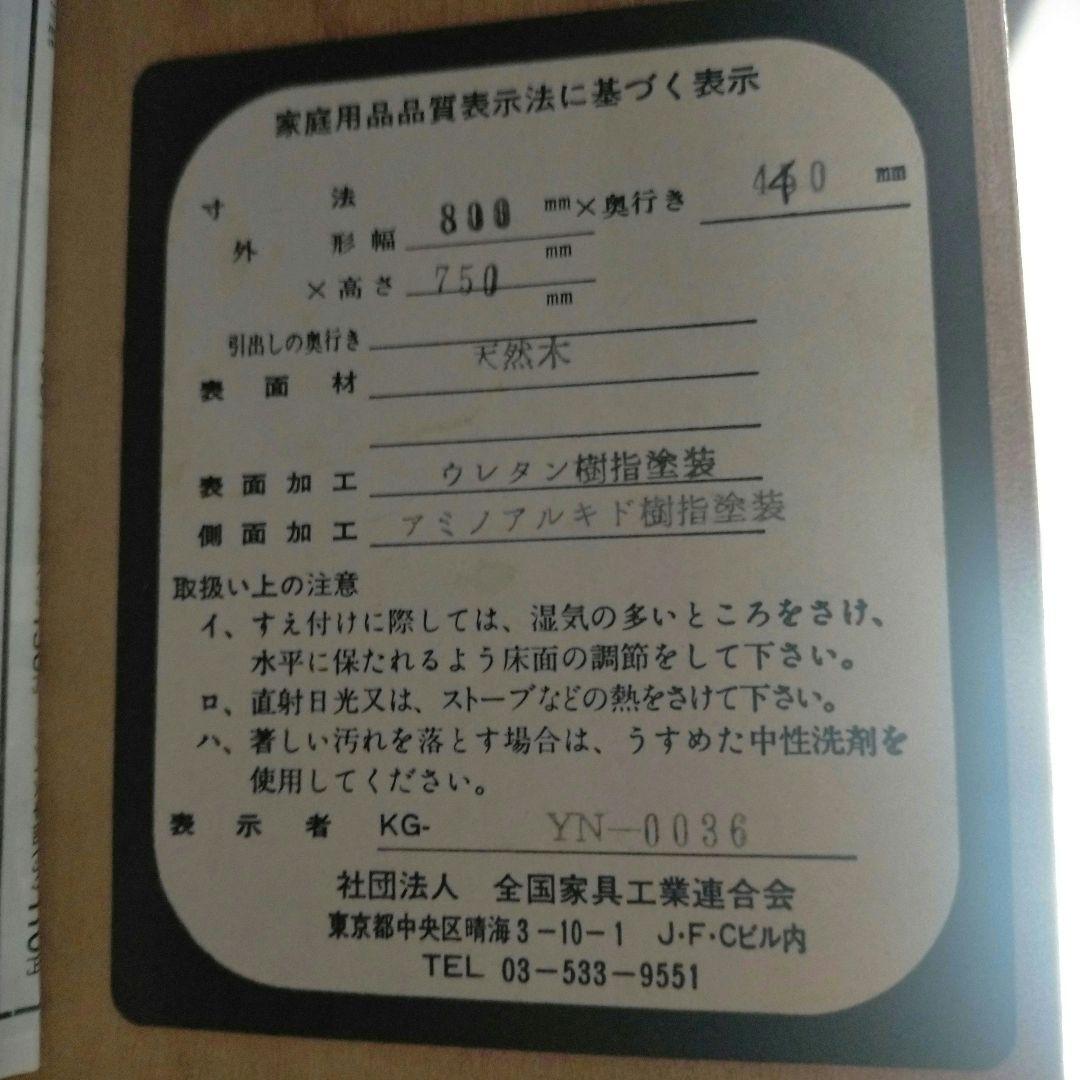 家庭用品品質表示法に基づく表示
寸法
外形幅 800 mm × 奥行き mm
mm
× 高さ 750
mm
引出しの奥行き
表面材 天然木
表面加工 ウレタン樹指塗装
側面加工 アミノアルキド樹指塗装
取扱い上の注意
イ、すえ付けに際しては、湿気の多いところをさけ、
水平に保たれるよう床面の調節をして下さい。
ロ、直射日光又は、ストーブなどの熱をさけて下さい。
ハ、著しい汚れを落とす場合は、うすめた中性洗剤を
使用してください。
表示者 KG- YN-0036
社団法人 全国家具工業連合会
東京都中央区晴海3-10-1 J・F・Cビル内
TEL 03-533-9551